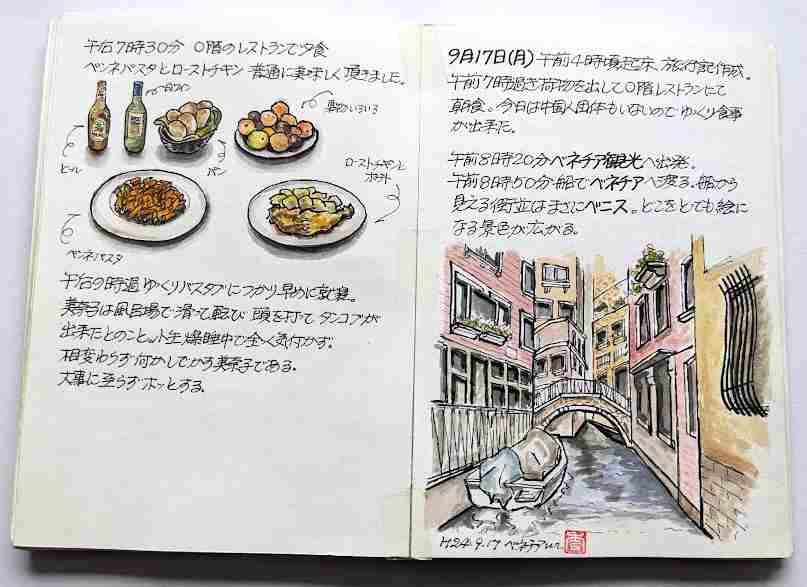 午后7時30分 0階のレストランで夕食
ペンネパスタとローストチキン 普通に美味しく頂きました。
白ワイン
果物いろいろ
ビール
パン
ローストチキンと
ポテト
ペンネパスタ
午后9時過 ゆっくりバスタブにつかり早めに就寝。
美奈子は風呂場で滑って転び 頭を打て タンコブが
出来たとのこと。小生 爆睡中で全く気付かず。
相変わらず何かしでかす美奈子である。
大事に至らずホッとする。
9月17日(月) 午前4時頃起床、旅行記作成。
午前7時過ぎ荷物を出して0階レストランにて
朝食。今日は中国人団体もいないのでゆっくり食事
が出来た。
午前8時20分ベネチア観光へ出発。
午前8時50分 船でベネチアへ渡る。船から
見える街並はまさにベニス。どこをとても絵に
なる景色が広がる。
H24.9.17 ベネチアにて